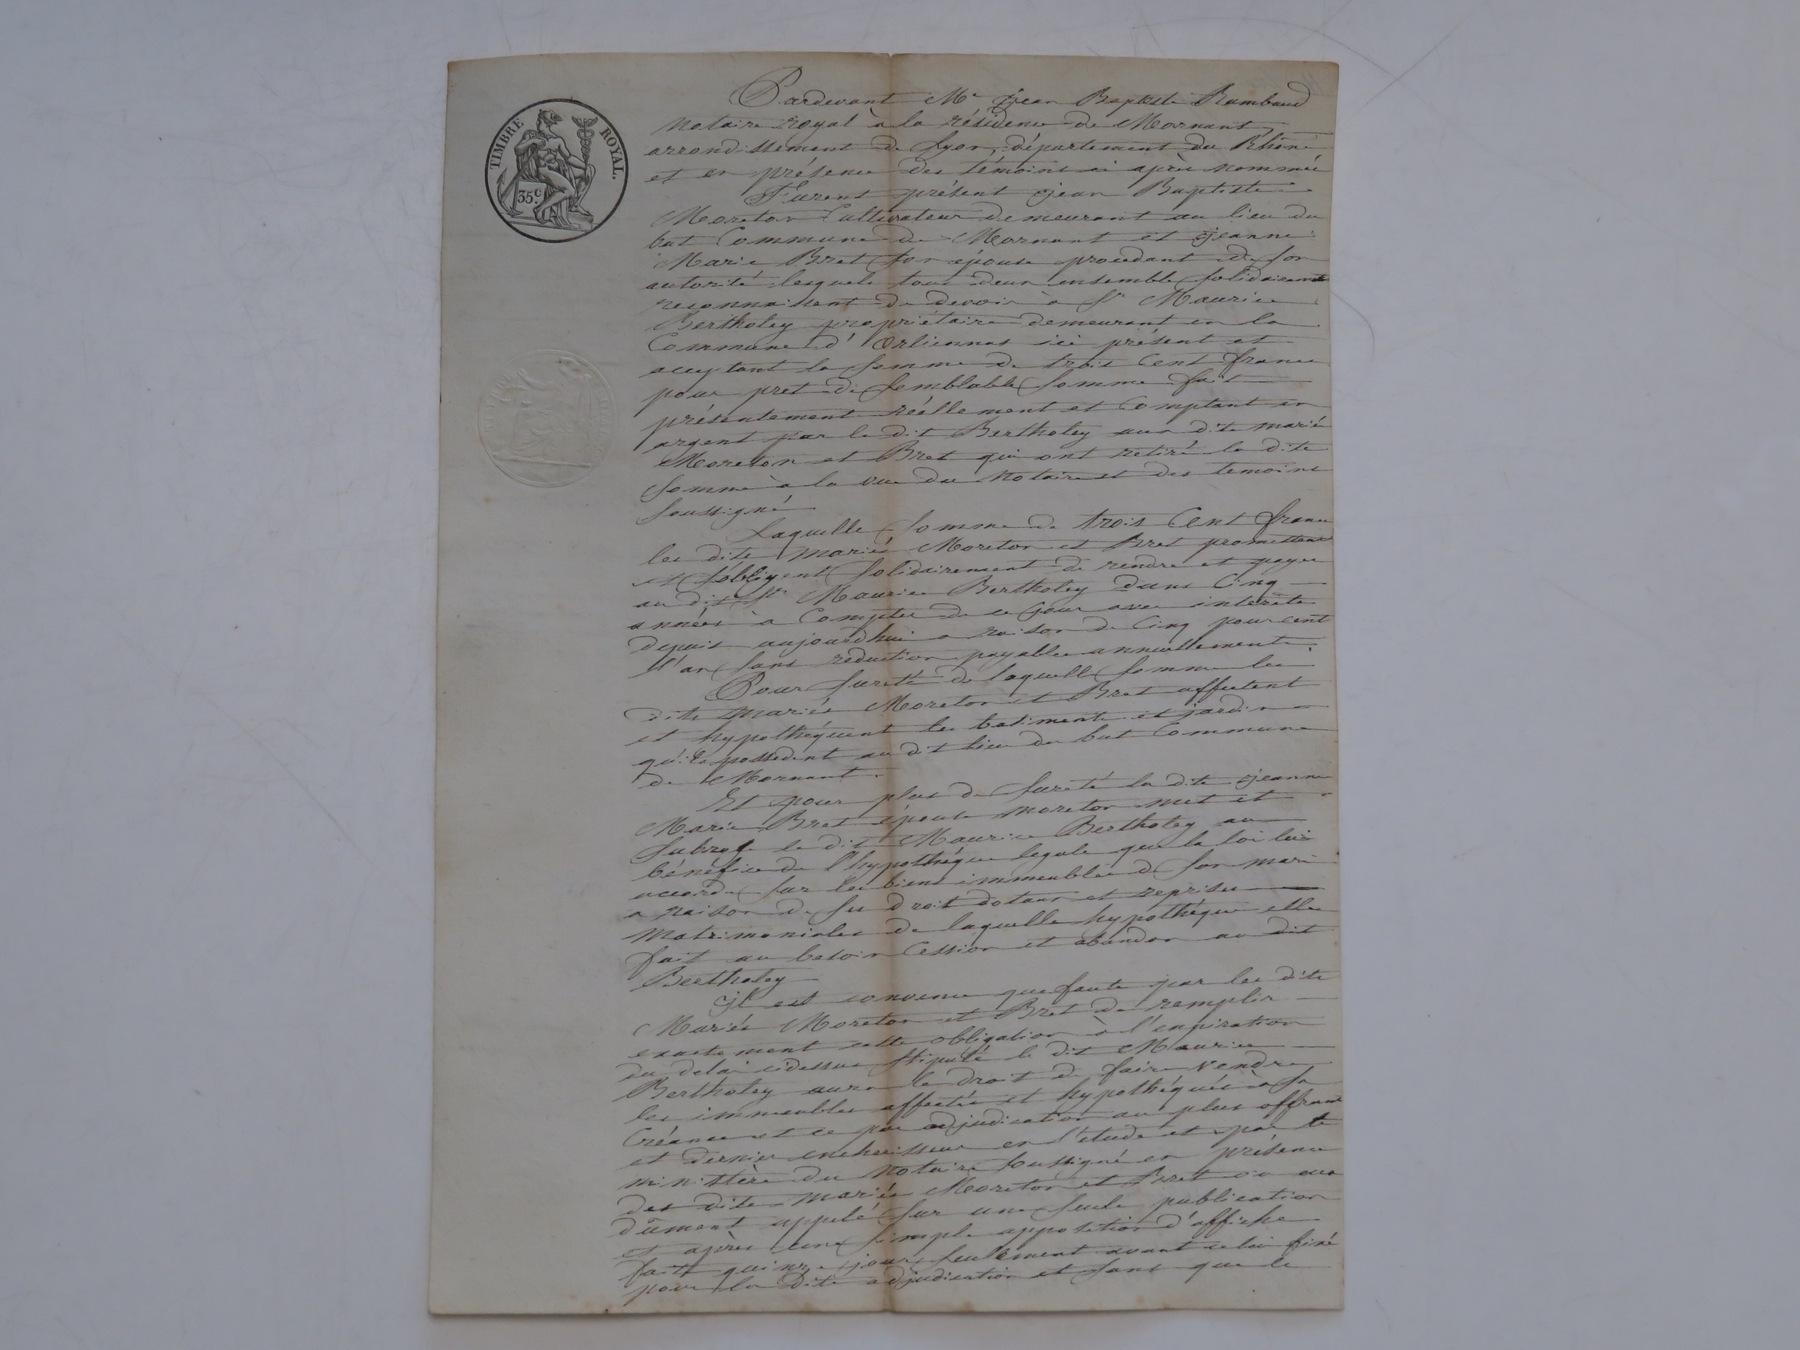 TIMBRE ROYAL.
35 c.
Pardevant Me jean Baptiste Rambaud
notaire royal à la résidence de Mornant,
arrondissement de Lyon, département du Rhône
et en présence des témoins ci après nommés
Furent présent jean Baptiste
Moreton Cultivateur demeurant au lieu du
but Commune de Mornant et jeanne
Marie Bret son épouse procedant de son
autorité lesquels tous deux ensemble solidairement
reconnaissent de devoir à Sr Maurice
Bertholey propriétaire demeurant en la
Commune d'Orliennas ici présent et
acceptant la somme de trois Cent francs
pour pret de semblable somme fait
présentement réellement et Comptant en
argent par le dit Bertholey aux dits mariés
Moreton et Bret qui ont retiré la dite
somme à la vue du notaire et des temoins
soussignés
Laquelle somme de trois Cent francs
les dits mariés Moreton et Bret promettent
et s'obligent solidairement de rendre et payer
au dit Sr Maurice Bertholey dans Cinq
années à Compter de ce jour avec intérêts
depuis aujourdhui a raison de Cinq pour cent
l'an sans reduction payables annuellement.
Pour sureté de laquelle somme les
dits mariés Moreton et Bret affectent
et hypothéquent les batiments et jardin
qu'ils possedent au dit lieu du but Commune
de Mornant.
Et pour plus de sureté la dite jeanne
Marie Bret épouse moreton met et
subroge le dit Maurice Bertholey au
bénéfice de l'hypothéque legale que la loi lui
accorde sur les biens immeubles de son mari
a raison de ses droits dotaux et reprises
matrimoniales de laquelle hypothéque elle
fait au besoin Cession et abandon au dit
Bertholey
il est convenu que faute par les dits
Mariés Moreton et Bret de remplir
exactement cette obligation à l'expiration
du delai cidessus stipulé le dit Maurice
Bertholey aura le droit de faire vendre
les immeubles affectés et hypothéqués à sa
Créance et ce par adjudication au plus offrant
et dernier encherisseur en l'étude et par le
ministère du notaire soussigné en présence
des dits mariés Moreton et Bret ou eux
dûment appelés sur une seule publication
et après une simple apposition d'affiche
fait quinze jours seulement avant celui fixé
pour la dite adjudication et sans que le